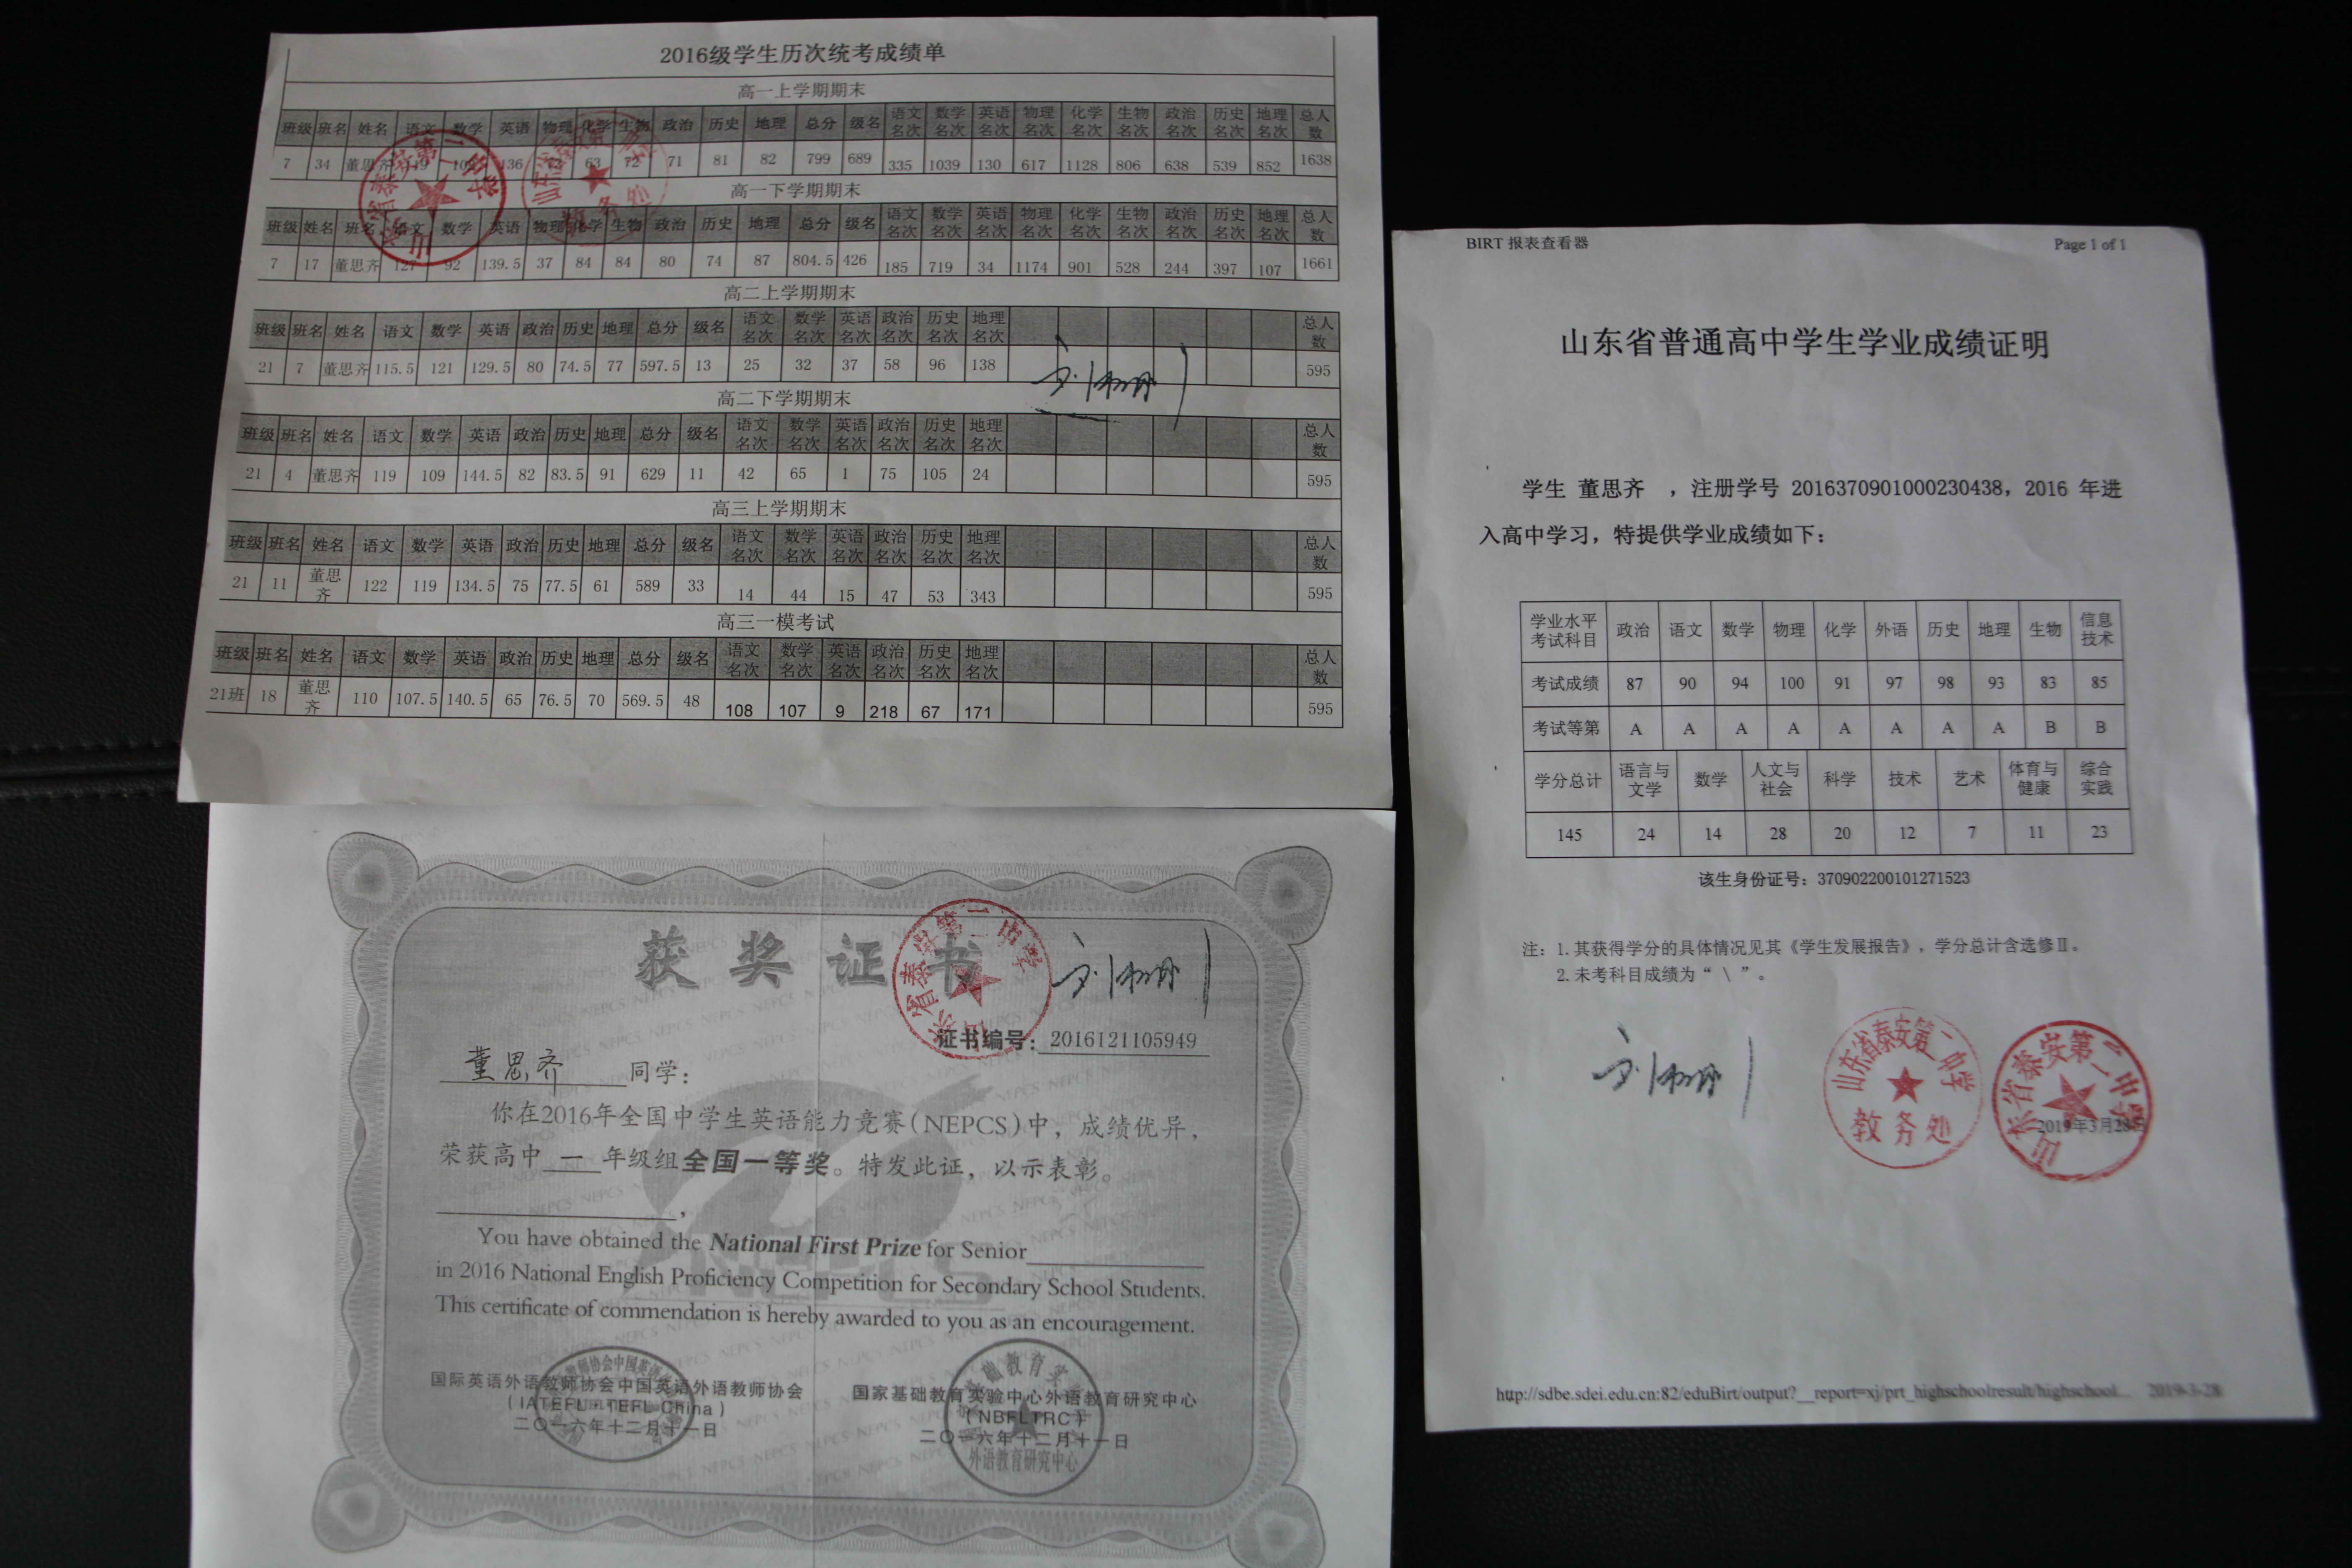 2016级学生历次统考成绩单
高一上学期期末
班级 班名 姓名 语文 数学 英语 物理 化学 生物 政治 历史 地理 总分 级名 语文名次 数学名次 英语名次 物理名次 化学名次 生物名次 政治名次 历史名次 地理名次 总人数
7 34 董思齐 119 136 72 63 72 71 81 82 799 689 335 1039 130 617 1128 806 638 539 852 1638
高一下学期期末
班级 姓名 班名 语文 数学 英语 物理 化学 生物 政治 历史 地理 总分 级名 语文名次 数学名次 英语名次 物理名次 化学名次 生物名次 政治名次 历史名次 地理名次 总人数
7 17 董思齐 127 92 139.5 37 84 84 80 74 87 804.5 426 185 719 34 1174 901 528 244 397 107 1661
高二上学期期末
班级 班名 姓名 语文 数学 英语 政治 历史 地理 总分 级名 语文名次 数学名次 英语名次 政治名次 历史名次 地理名次 总人数
21 7 董思齐 115.5 121 129.5 80 74.5 77 597.5 13 25 32 37 58 96 138 595
高二下学期期末
班级 班名 姓名 语文 数学 英语 政治 历史 地理 总分 级名 语文名次 数学名次 英语名次 政治名次 历史名次 地理名次 总人数
21 4 董思齐 119 109 144.5 82 83.5 91 629 11 42 65 1 75 105 24 595
高三上学期期末
班级 班名 姓名 语文 数学 英语 政治 历史 地理 总分 级名 语文名次 数学名次 英语名次 政治名次 历史名次 地理名次 总人数
21 11 董思齐 122 119 134.5 75 77.5 61 589 33 14 44 15 47 53 343 595
高三一模考试
班级 班名 姓名 语文 数学 英语 政治 历史 地理 总分 级名 语文名次 数学名次 英语名次 政治名次 历史名次 地理名次 总人数
21班 18 董思齐 110 107.5 140.5 65 76.5 70 569.5 48 108 107 9 218 67 171 595
山东省泰安第二中学
山东省泰安第二中学
教务处
获奖证书
山东省泰安第二中学
证书编号：2016121105949
董思齐 同学：
你在2016年全国中学生英语能力竞赛(NEPCS)中，成绩优异，
荣获高中 一 年级组全国一等奖。特发此证，以示表彰。
You have obtained the National First Prize for Senior
in 2016 National English Proficiency Competition for Secondary School Students.
This certificate of commendation is hereby awarded to you as an encouragement.
国际英语外语教师协会中国英语外语教师协会
(IATEFL·TEFL China)
二〇一六年十二月十一日
国家基础教育实验中心外语教育研究中心
(NBFLTRC)
二〇一六年十二月十一日
外语教育研究中心
BIRT 报表查看器 Page 1 of 1
山东省普通高中学生学业成绩证明
学生 董思齐 ，注册学号 2016370901000230438，2016 年进
入高中学习，特提供学业成绩如下：
学业水平考试科目 政治 语文 数学 物理 化学 外语 历史 地理 生物 信息技术
考试成绩 87 90 94 100 91 97 98 93 83 85
考试等第 A A A A A A A A B B
学分总计 语言与文学 数学 人文与社会 科学 技术 艺术 体育与健康 综合实践
145 24 14 28 20 12 7 11 23
该生身份证号：370902200101271523
注：1.其获得学分的具体情况见其《学生发展报告》，学分总计含选修Ⅱ。
2.未考科目成绩为“ \ ”。
山东省泰安第二中学
教务处
山东省泰安第二中学
2019年3月28日
http://sdbe.sdei.edu.cn:82/eduBirt/output?__report=xj/prt_highschoolresult/highschool... 2019-3-28